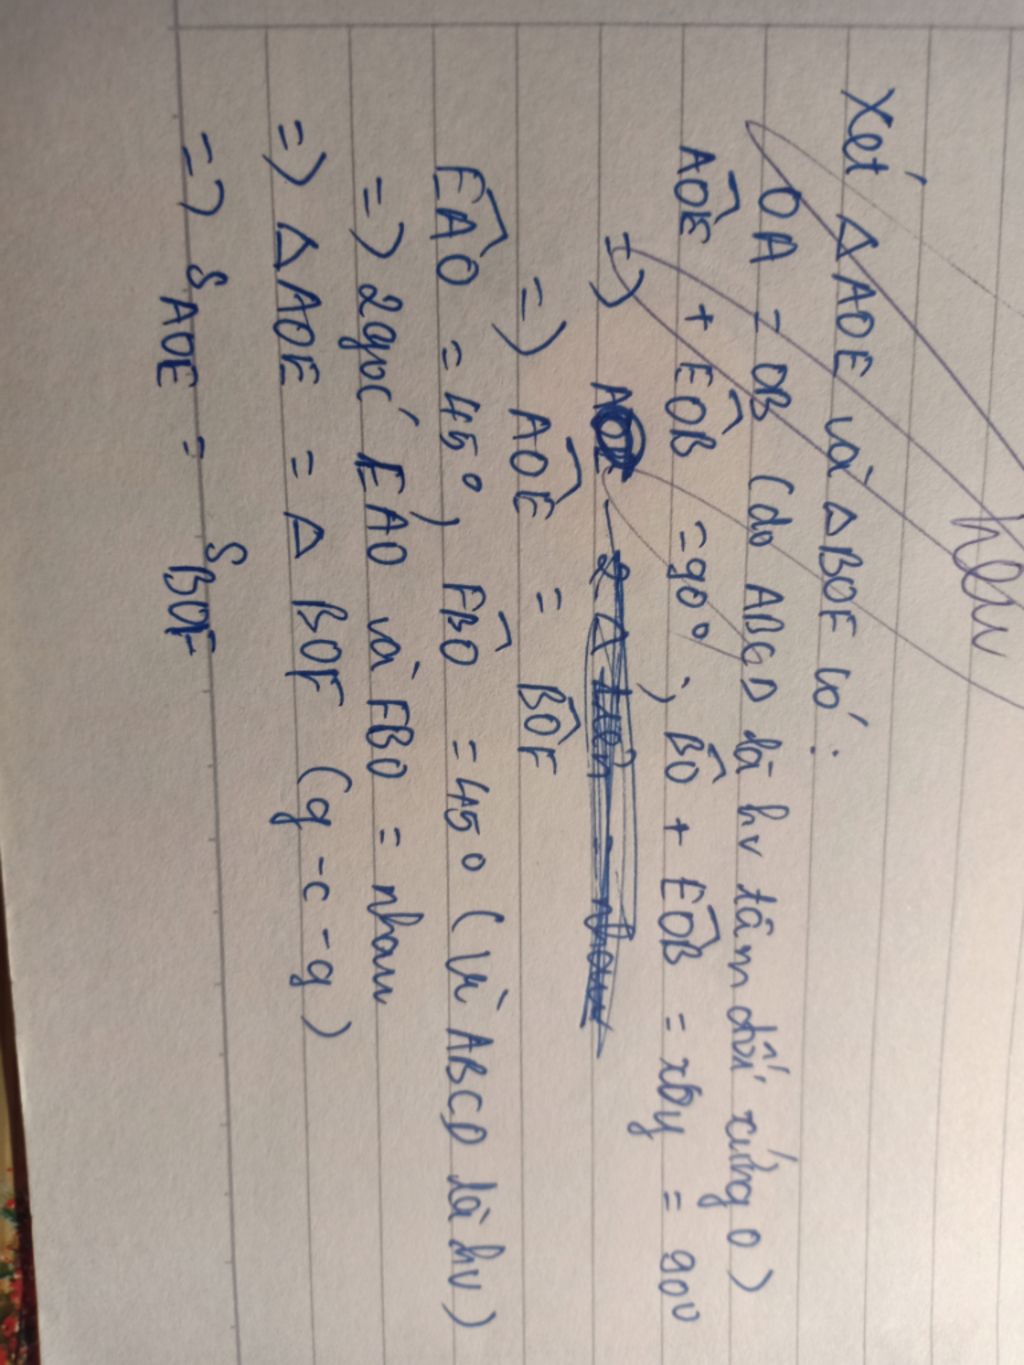 hau
Xét ΔAOE và ΔBOF có:
OA = OB (do ABCD là hv tâm đối xứng O)
AÔE + EÔB = 90°; BÔ + EÔB = xÔy = 90°
=)
=) AÔE = BÔF
EÂO = 45°, FB̂O = 45° (Vì ABCD là hv)
=) 2 góc EAO và FBO = nhau
=) ΔAOE = Δ BOF (g-c-g)
=) S AOE = S BOF